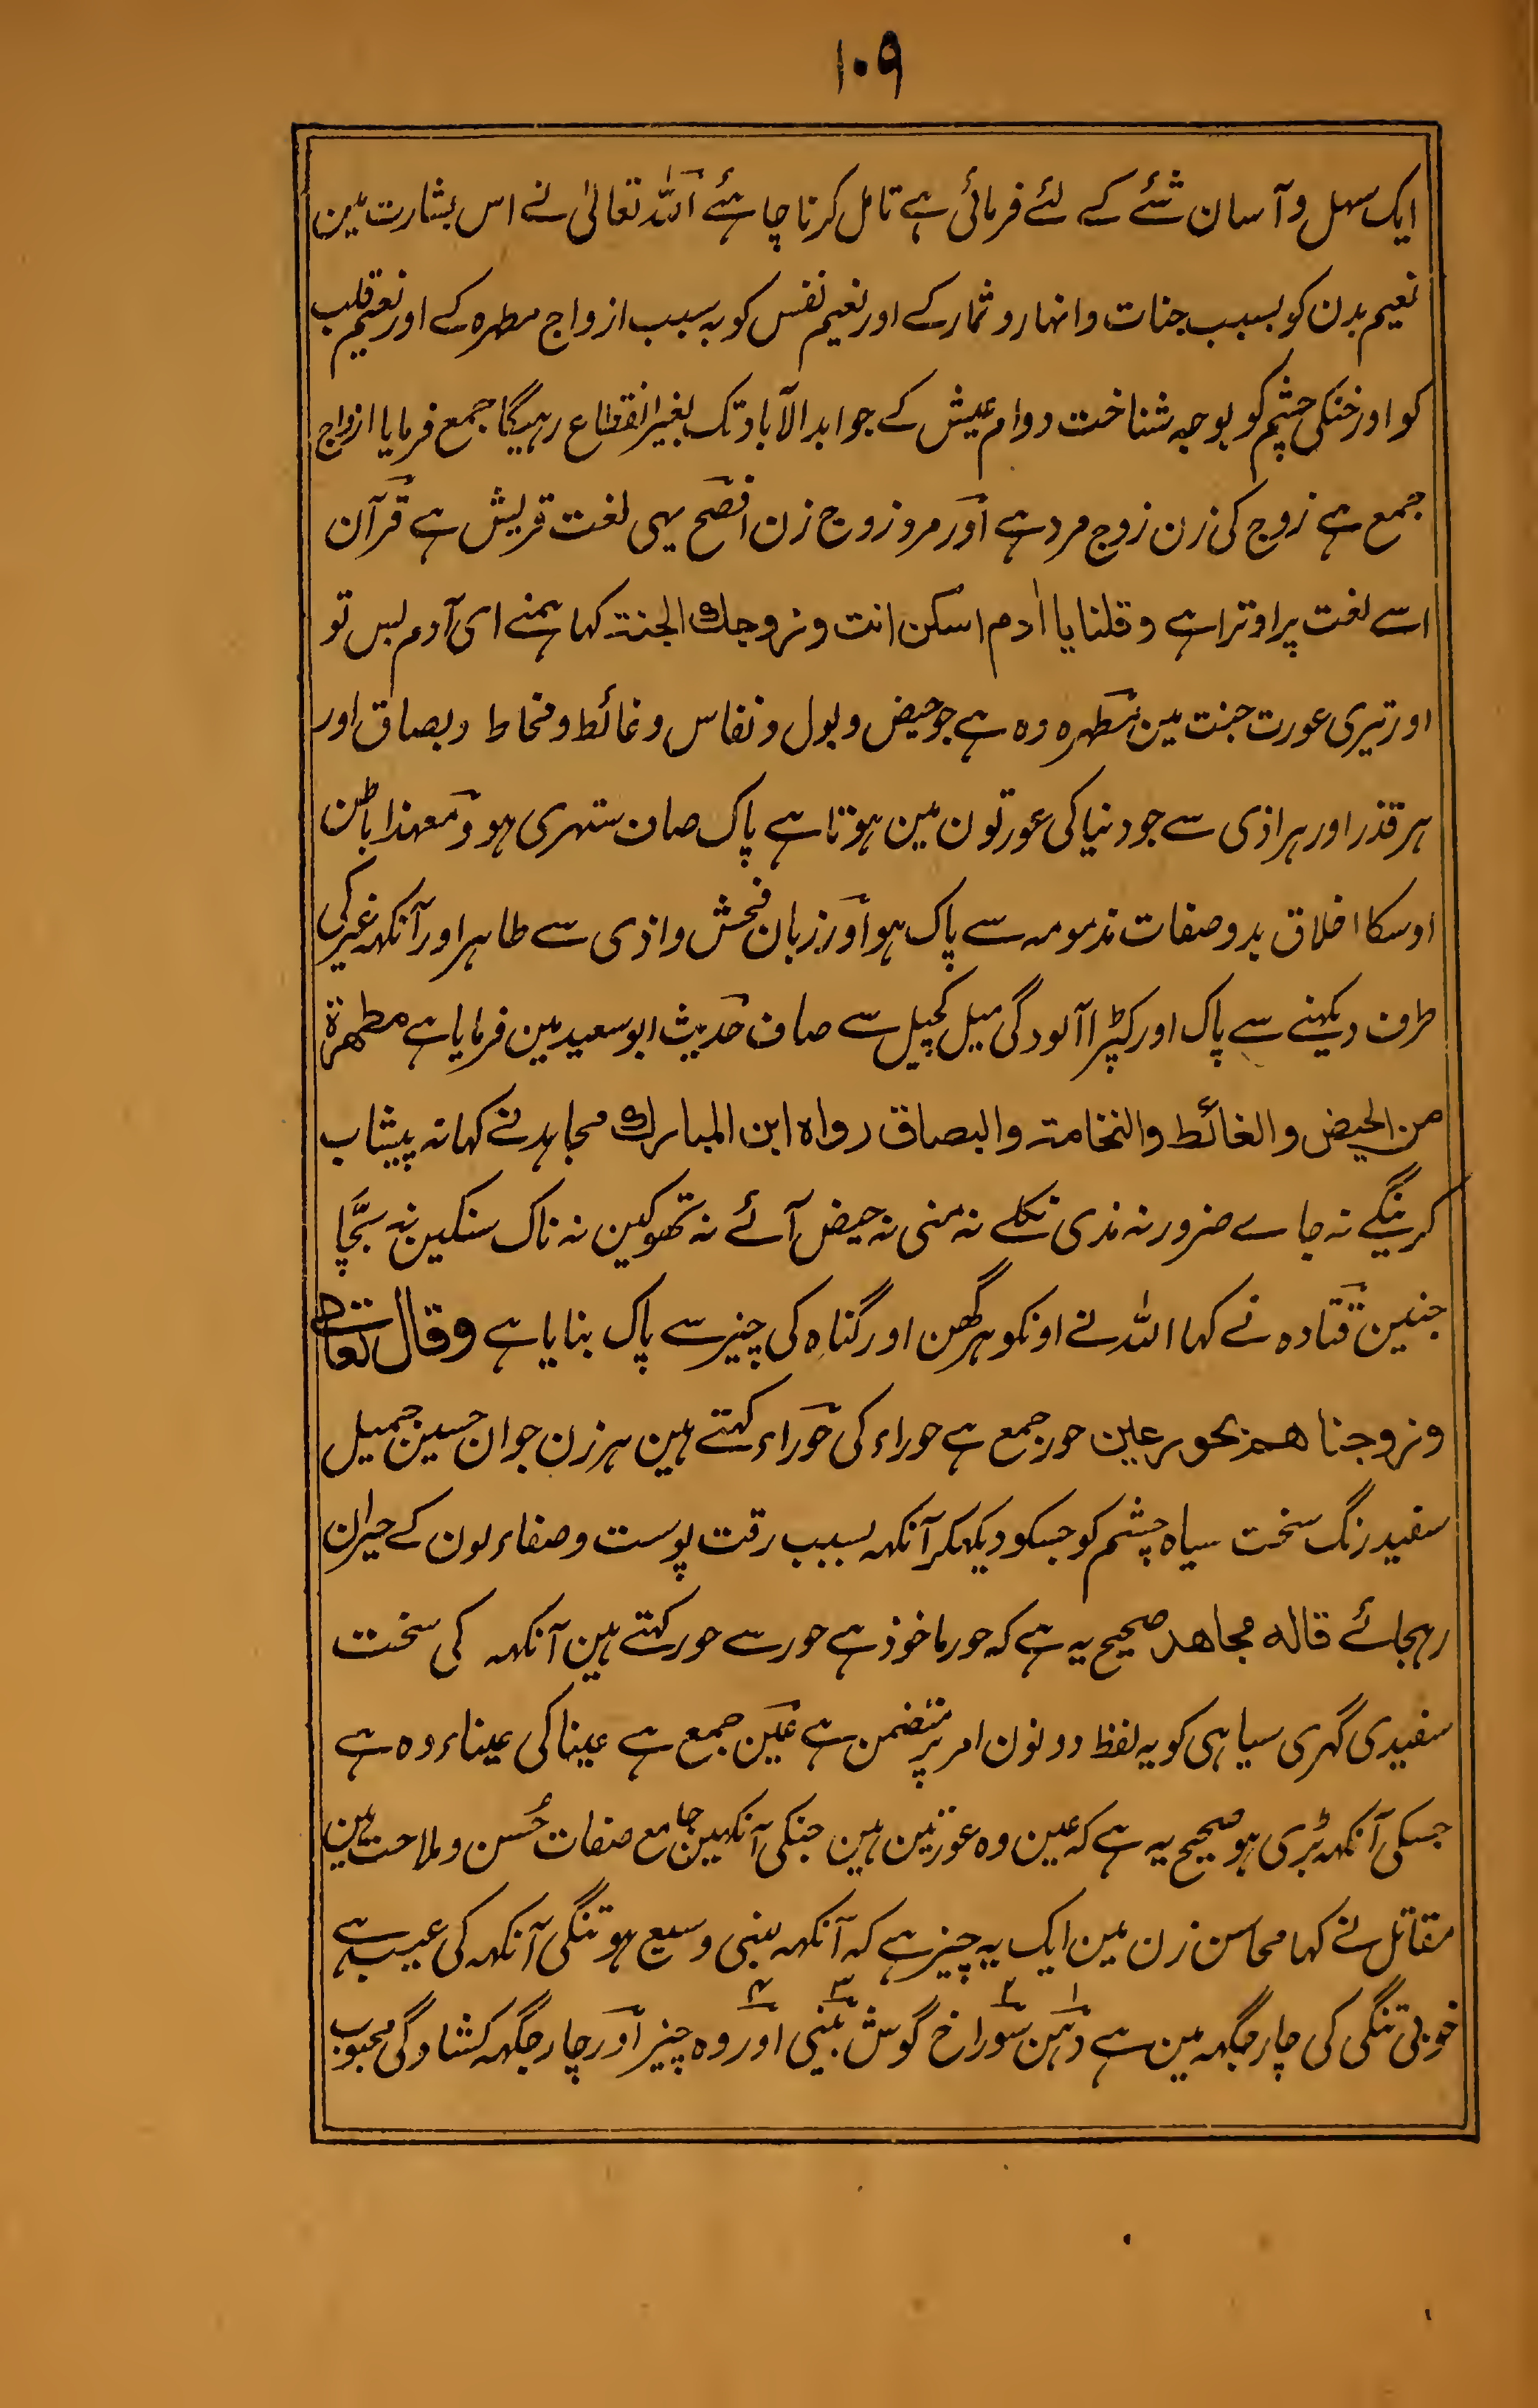 ۱۰۹
ایک سہل و آسان شئے کے لئے فرمائی ہے تامل کرنا چاہئے اللہ تعالیٰ نے اس بشارت مین
نعیم بدن کو بسبب جنات و انہار و ثمار کے اور نعیم نفس کو بہ سبب ازواج مطہرہ کے اور نعیم قلب
کو اور خنکی چشم کو بوجہ شناخت دوام عیش کے جو ابد الآباد تک بغیر انقطاع رہیگا جمع فرمایا ازواج
جمع ہے زوج کی زن زوج مرد ہے اور مرد زوج زن افصح یہی لغت قریش ہے قرآن
اسے لغت پر اوترا ہے وقلنا یا اٰدم اسکن انت وزوجك الجنة کہا ہمنے ای آدم بس تو
اور تیری عورت جنت مین مطہرہ وہ ہے جو حیض و بول و نفاس و غائط و مخاط و بصاق اور
ہر قذر اور ہر اذی سے جو دنیا کی عورتون مین ہوتا ہے پاک صاف ستھری ہو و معہذا باطن
اوسکا اخلاق بد و صفات مذمومہ سے پاک ہو اور زبان فحش و اذی سے طاہر اور آنکھہ غیر کی
طرف دیکہنے سے پاک اور کپڑا آلودگی میل کچیل سے صاف حدیث ابو سعید مین فرمایا ہے مطهرة
من الحیض والغائط والنخامة والبصاق رواه ابن المبارك مجاہد نے کہا نہ پیشاب
کرینگے نہ جاے ضرور نہ مذی نکلے نہ منی نہ حیض آئے نہ تھوکین نہ ناک سنکین نہ بچا
جنین قتادہ نے کہا اللہ نے اونکو ہر گھن اور گناہ کی چیز سے پاک بنایا ہے وقال تعالی
وزوجناهم بحور عین حور جمع ہے حوراء کی حوراء کہتے ہین ہر زن جوان حسین جمیل
سفید رنگ سخت سیاہ چشم کو جسکو دیکھکر آنکھہ بسبب رقت پوست و صفاء لون کے حیران
رہجائے قاله مجاهد صحیح یہ ہے کہ حور ماخوذ ہے حور سے حور کہتے ہین آنکھہ کی سخت
سفیدی گہری سیاہی کو یہ لفظ دونون امر پر متضمن ہے عین جمع ہے عینا کی عیناء وہ ہے
جسکی آنکھہ بڑی ہو صحیح یہ ہے کہ عین وہ عورتین ہین جنکی آنکہین جامع صفات حُسن و ملاحت ہین
مقاتل نے کہا محاسن زن مین ایک یہ چیز ہے کہ آنکھہ وسیع ہو تنگی آنکھہ کی عیب ہے
خوبی تنگی کی چار جگہہ مین ہے دہن ۱ سوراخ گوش ۲ بینی ۳ اور وہ چیز ۴ اور چار جگہہ کشادگی محبوب